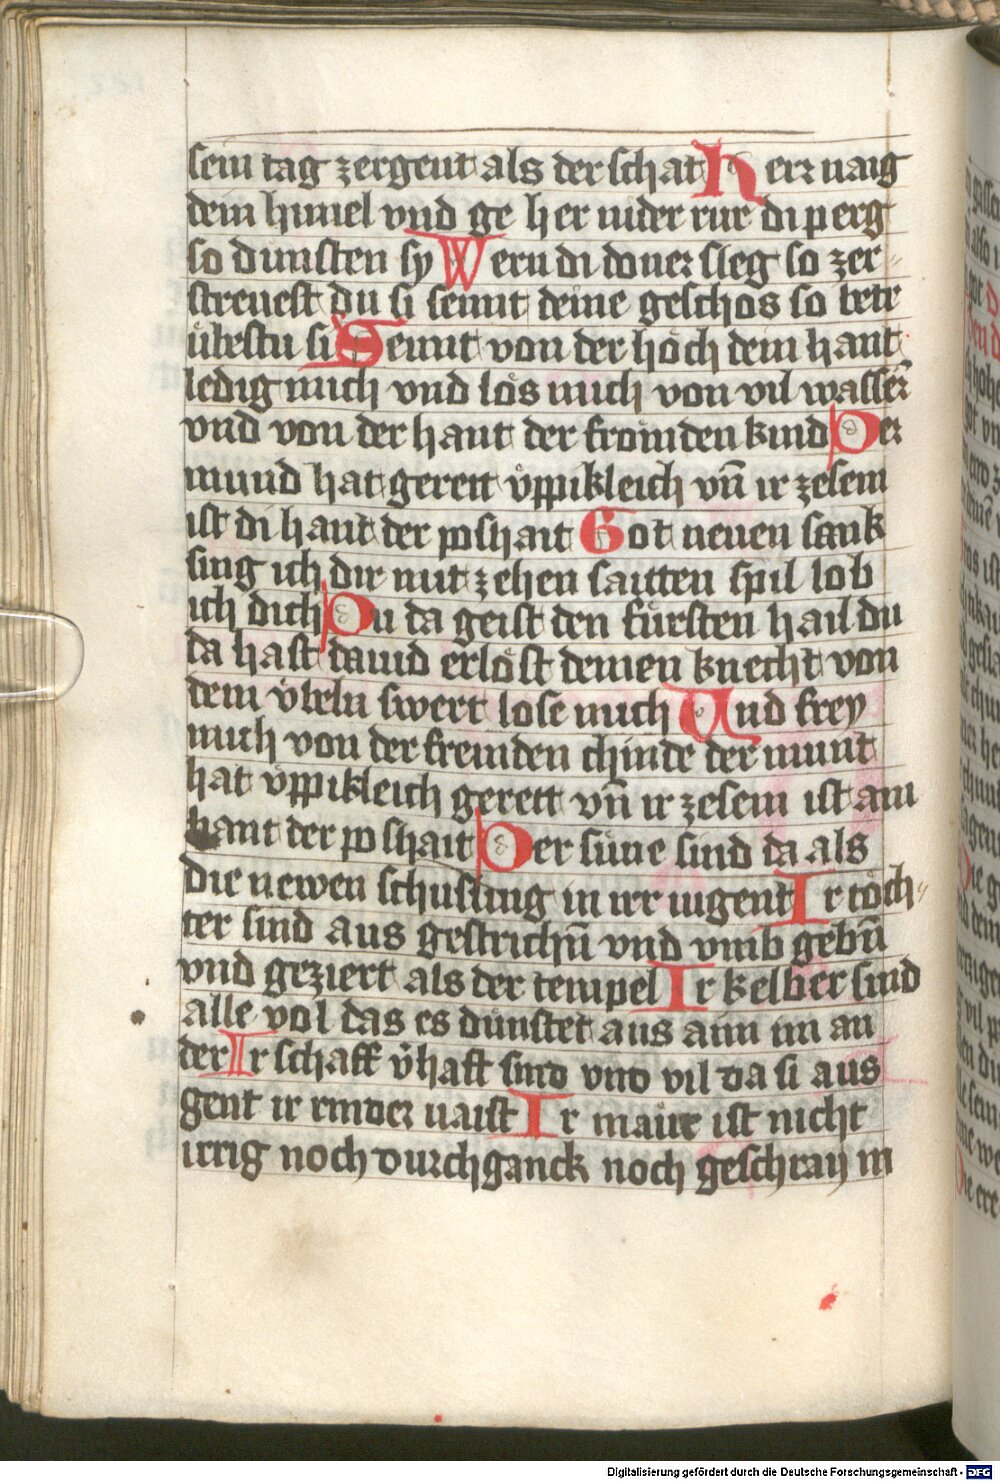 sein tag zergent als der schat Herr naig
dein himel vnd ge her nider rur di perg
so dunsten sy Wern di doner sleg so zer-
streuest du si sennt deine geschos so betr
ubestu si Sennt von der höch dein hant
ledig mich vnd lös mich von vil wasser̄
vnd von der hant der frömden kind Der
mund hat gerett v̊ppikleich vn̄ ir zesem
ist di hant der poshait Got neuen sank
sing ich dir mit zehen saitten spil lob
ich dich Du da geist den fürsten hail du
da hast dauid erlöst deinen knecht von
dem v̈beln swert lose mich Und frey
mich von der fremden chinde der munt
hat v̊ppikleich gerett vn̄ ir zesem ist ain
hant der poshait Der süne sind da als
die newen schusling in irr iugent Ir töch-
ter sind aus gestrichn̄ vnd vmb gebn̄
vnd geziert als der tempel Ir kelber sind
alle vol das es dunstet aus aim im an
der Ir schaff v̈haft sind vnd vil da si aus
gent ir rinder uaist Ir maür ist nicht
irrig noch durchganck noch geschray in
Digitalisierung gefördert durch die Deutsche Forschungsgemeinschaft - DFG